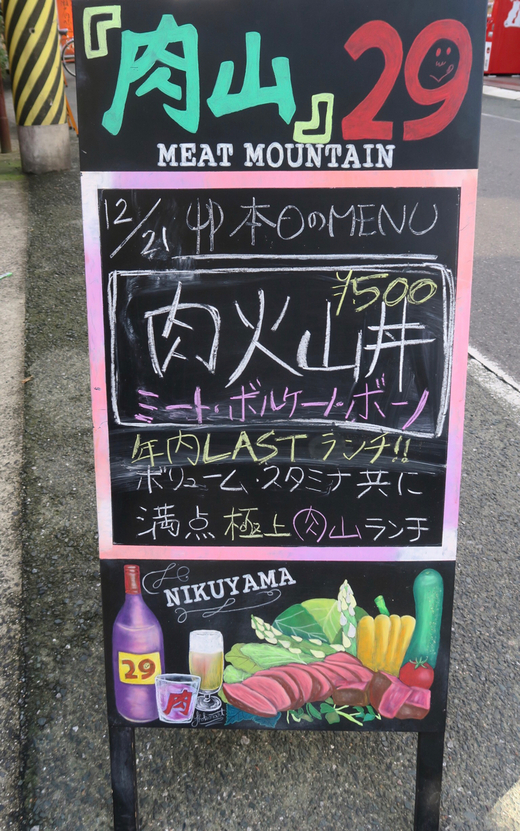 『肉山』29
MEAT MOUNTAIN
12/21 本日のMENU
¥500
肉火山丼
ミート・ボルケーノ・ボーノ
年内LASTランチ!!
ボリューム・スタミナ共に
満点 極上肉山ランチ
NIKUYAMA
29
肉